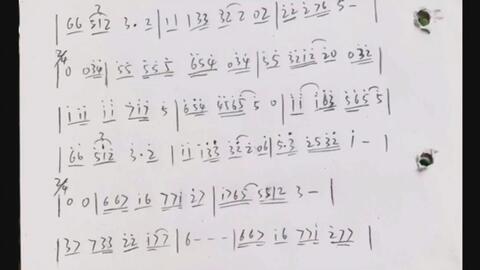 | 66 512 3·2 | 11 133 322 02 | 22 276 5 - |
2/4 | 0 034 | 55 555 654 034 | 55 3212 20 032 |
| 111 11 711 5 | 654 4565 5 0 | 11 163 565 5 |
| 66 512 3·2 | 11 133 322 06 | 5·3 2532 1 - |
2/4 | 0 0 | 667 16 771 27 | 1765 5512 3 - |
| 37 733 22 177 | 6 - - - | 667 16 771 277 |